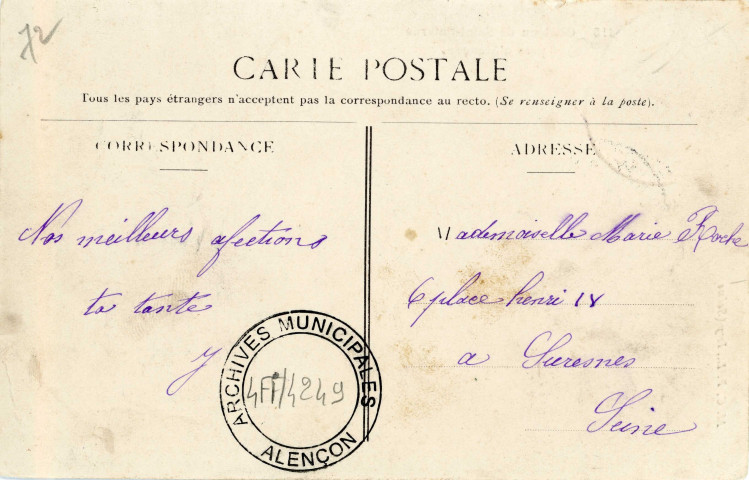 72
CARTE POSTALE
Tous les pays étrangers n'acceptent pas la correspondance au recto. (Se renseigner à la poste).
CORRESPONDANCE
Nos meilleurs afections
ta tante
J
ADRESSE
Mademoiselle Marie
6 place henri IV
a Suresnes
Seine
ARCHIVES MUNICIPALES
4Fi/4249
ALENÇON